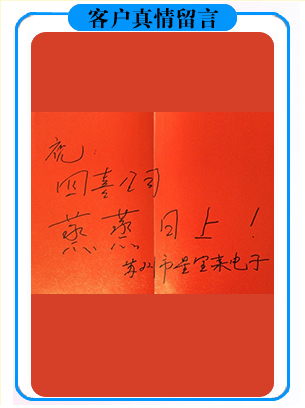 客户真情留言
祝:
四喜公司
蒸蒸日上!
苏州市星宝来电子